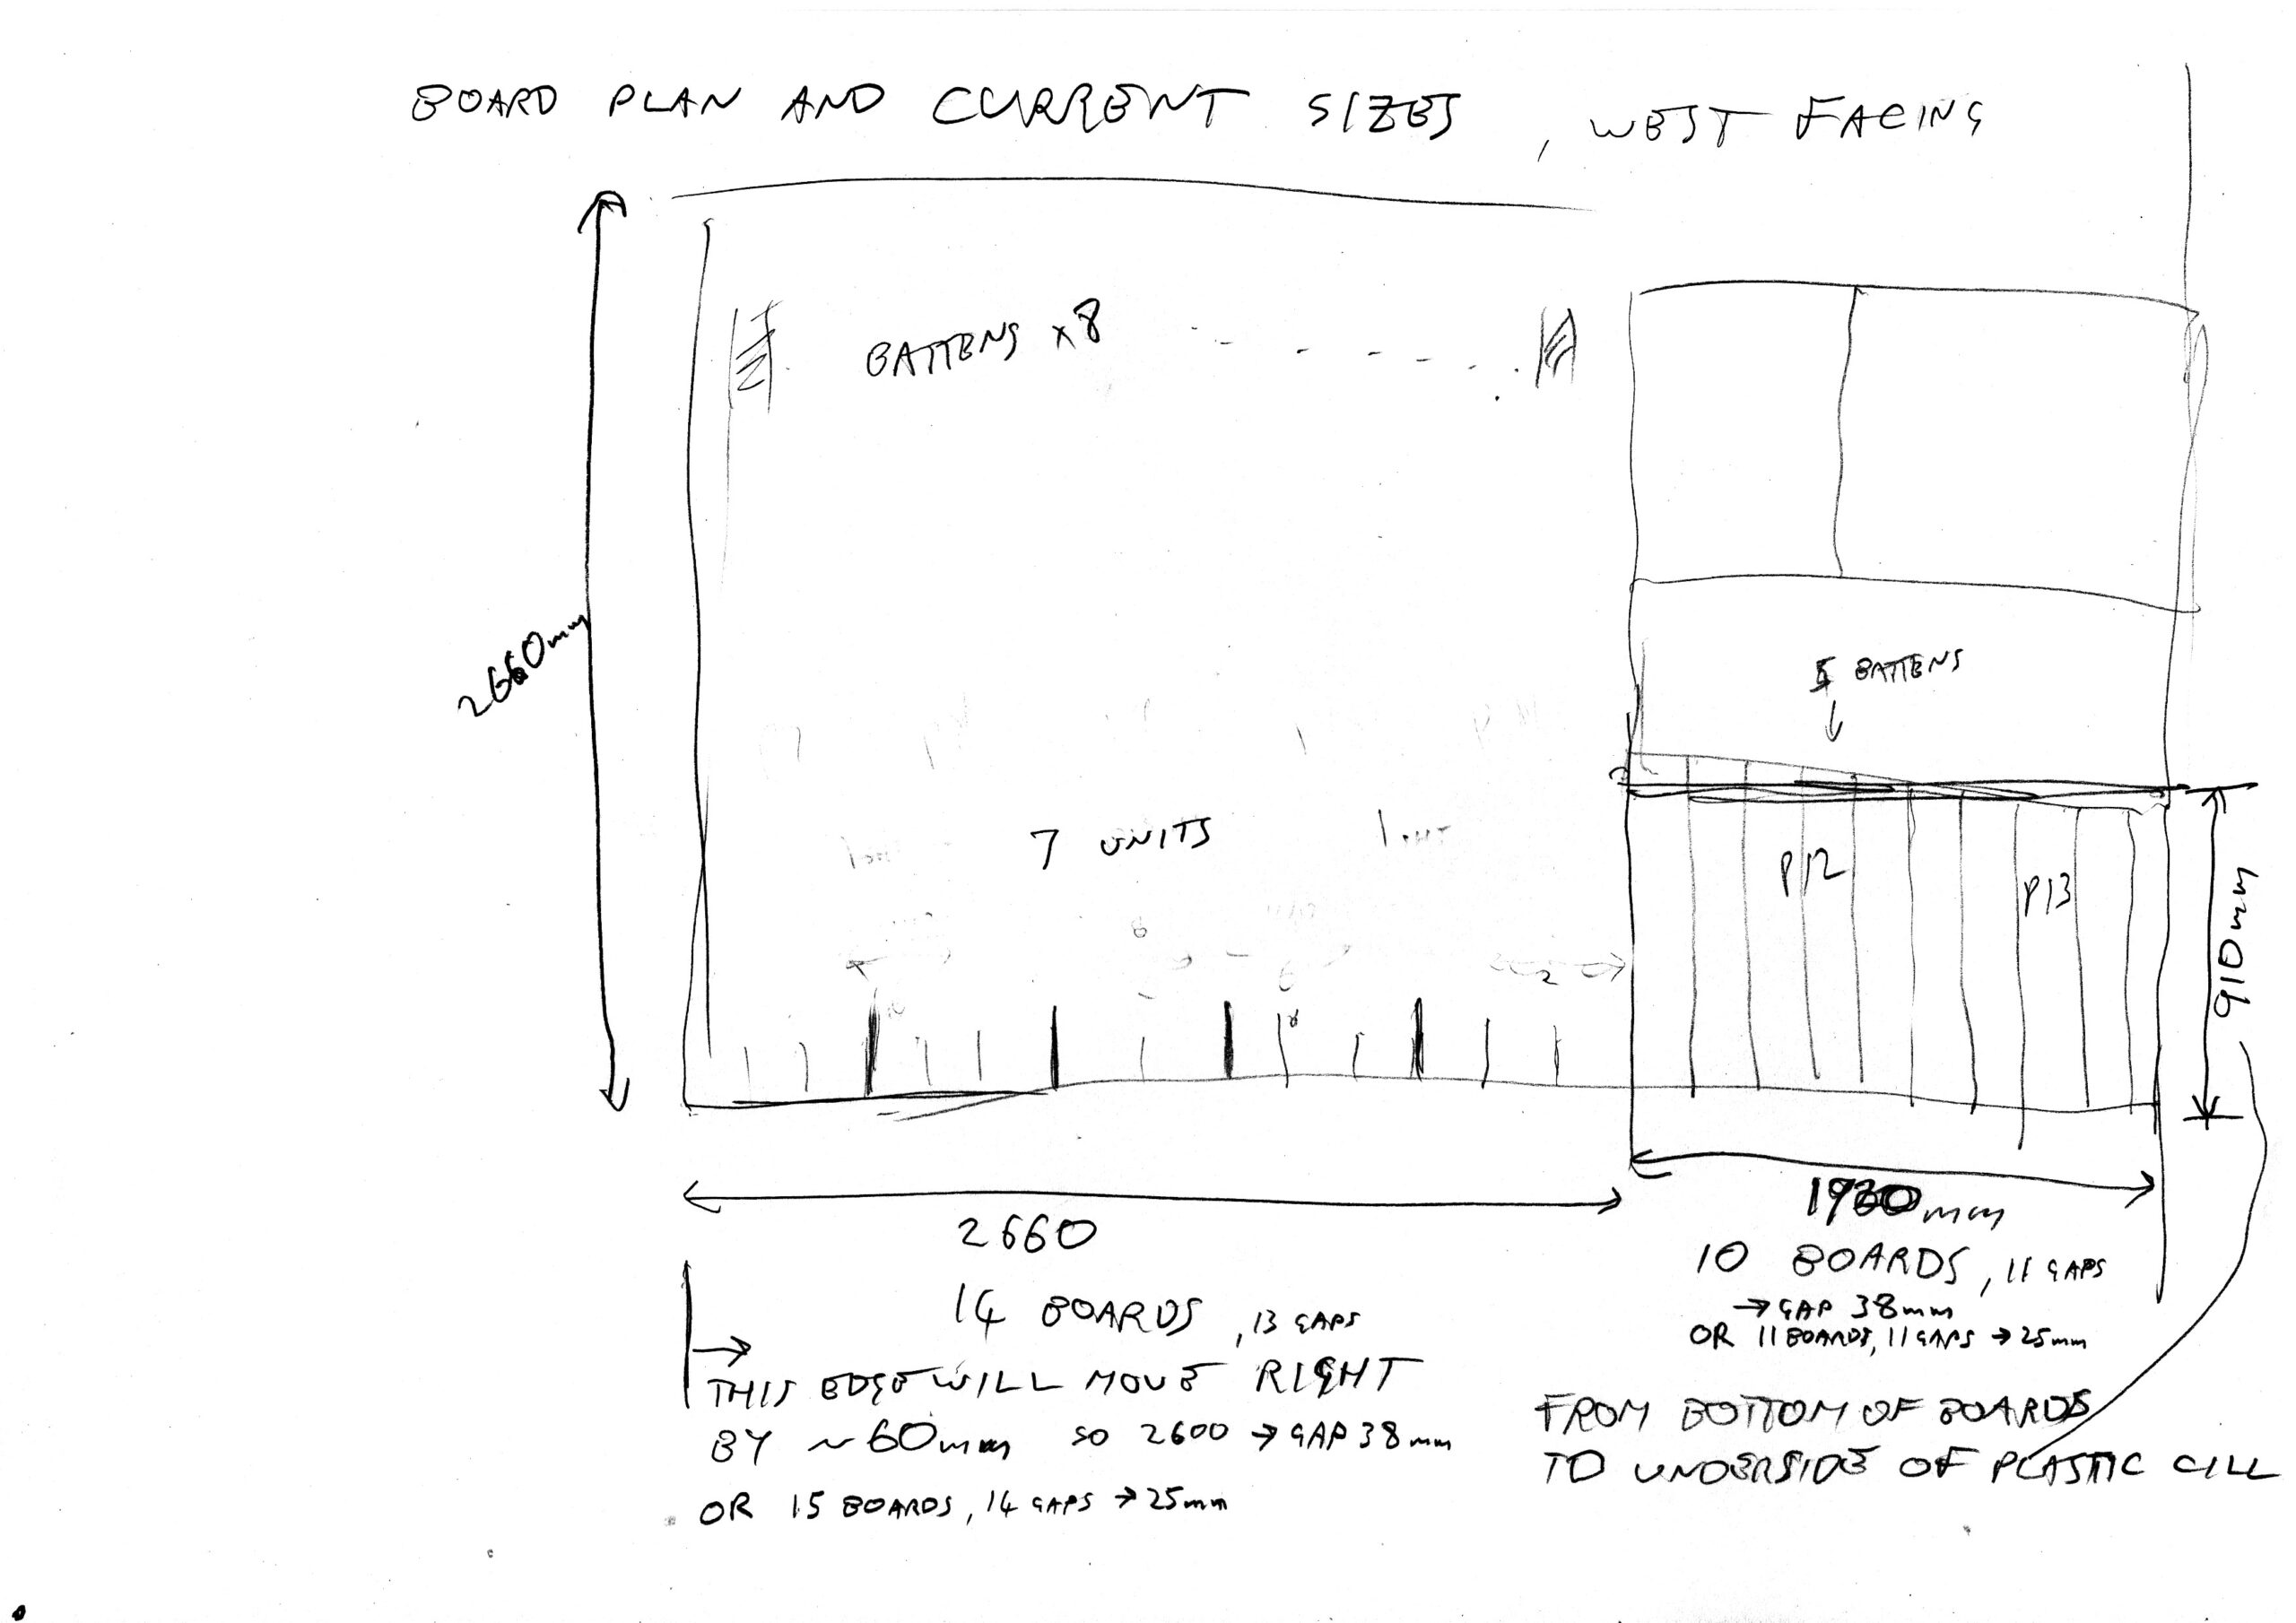 BOARD PLAN AND CURRENT SIZES, WEST FACING
BATTENS x8
2660mm
5 BATTENS
7 UNITS
P12
P13
910mm
2660
1930mm
14 BOARDS, 13 GAPS
THIS EDGE WILL MOVE RIGHT
BY ~60mm SO 2600 → GAP 38mm
OR 15 BOARDS, 14 GAPS → 25mm
10 BOARDS, 11 GAPS
→ GAP 38mm
OR 11 BOARDS, 11 GAPS → 25mm
FROM BOTTOM OF BOARDS
TO UNDERSIDE OF PLASTIC CILL